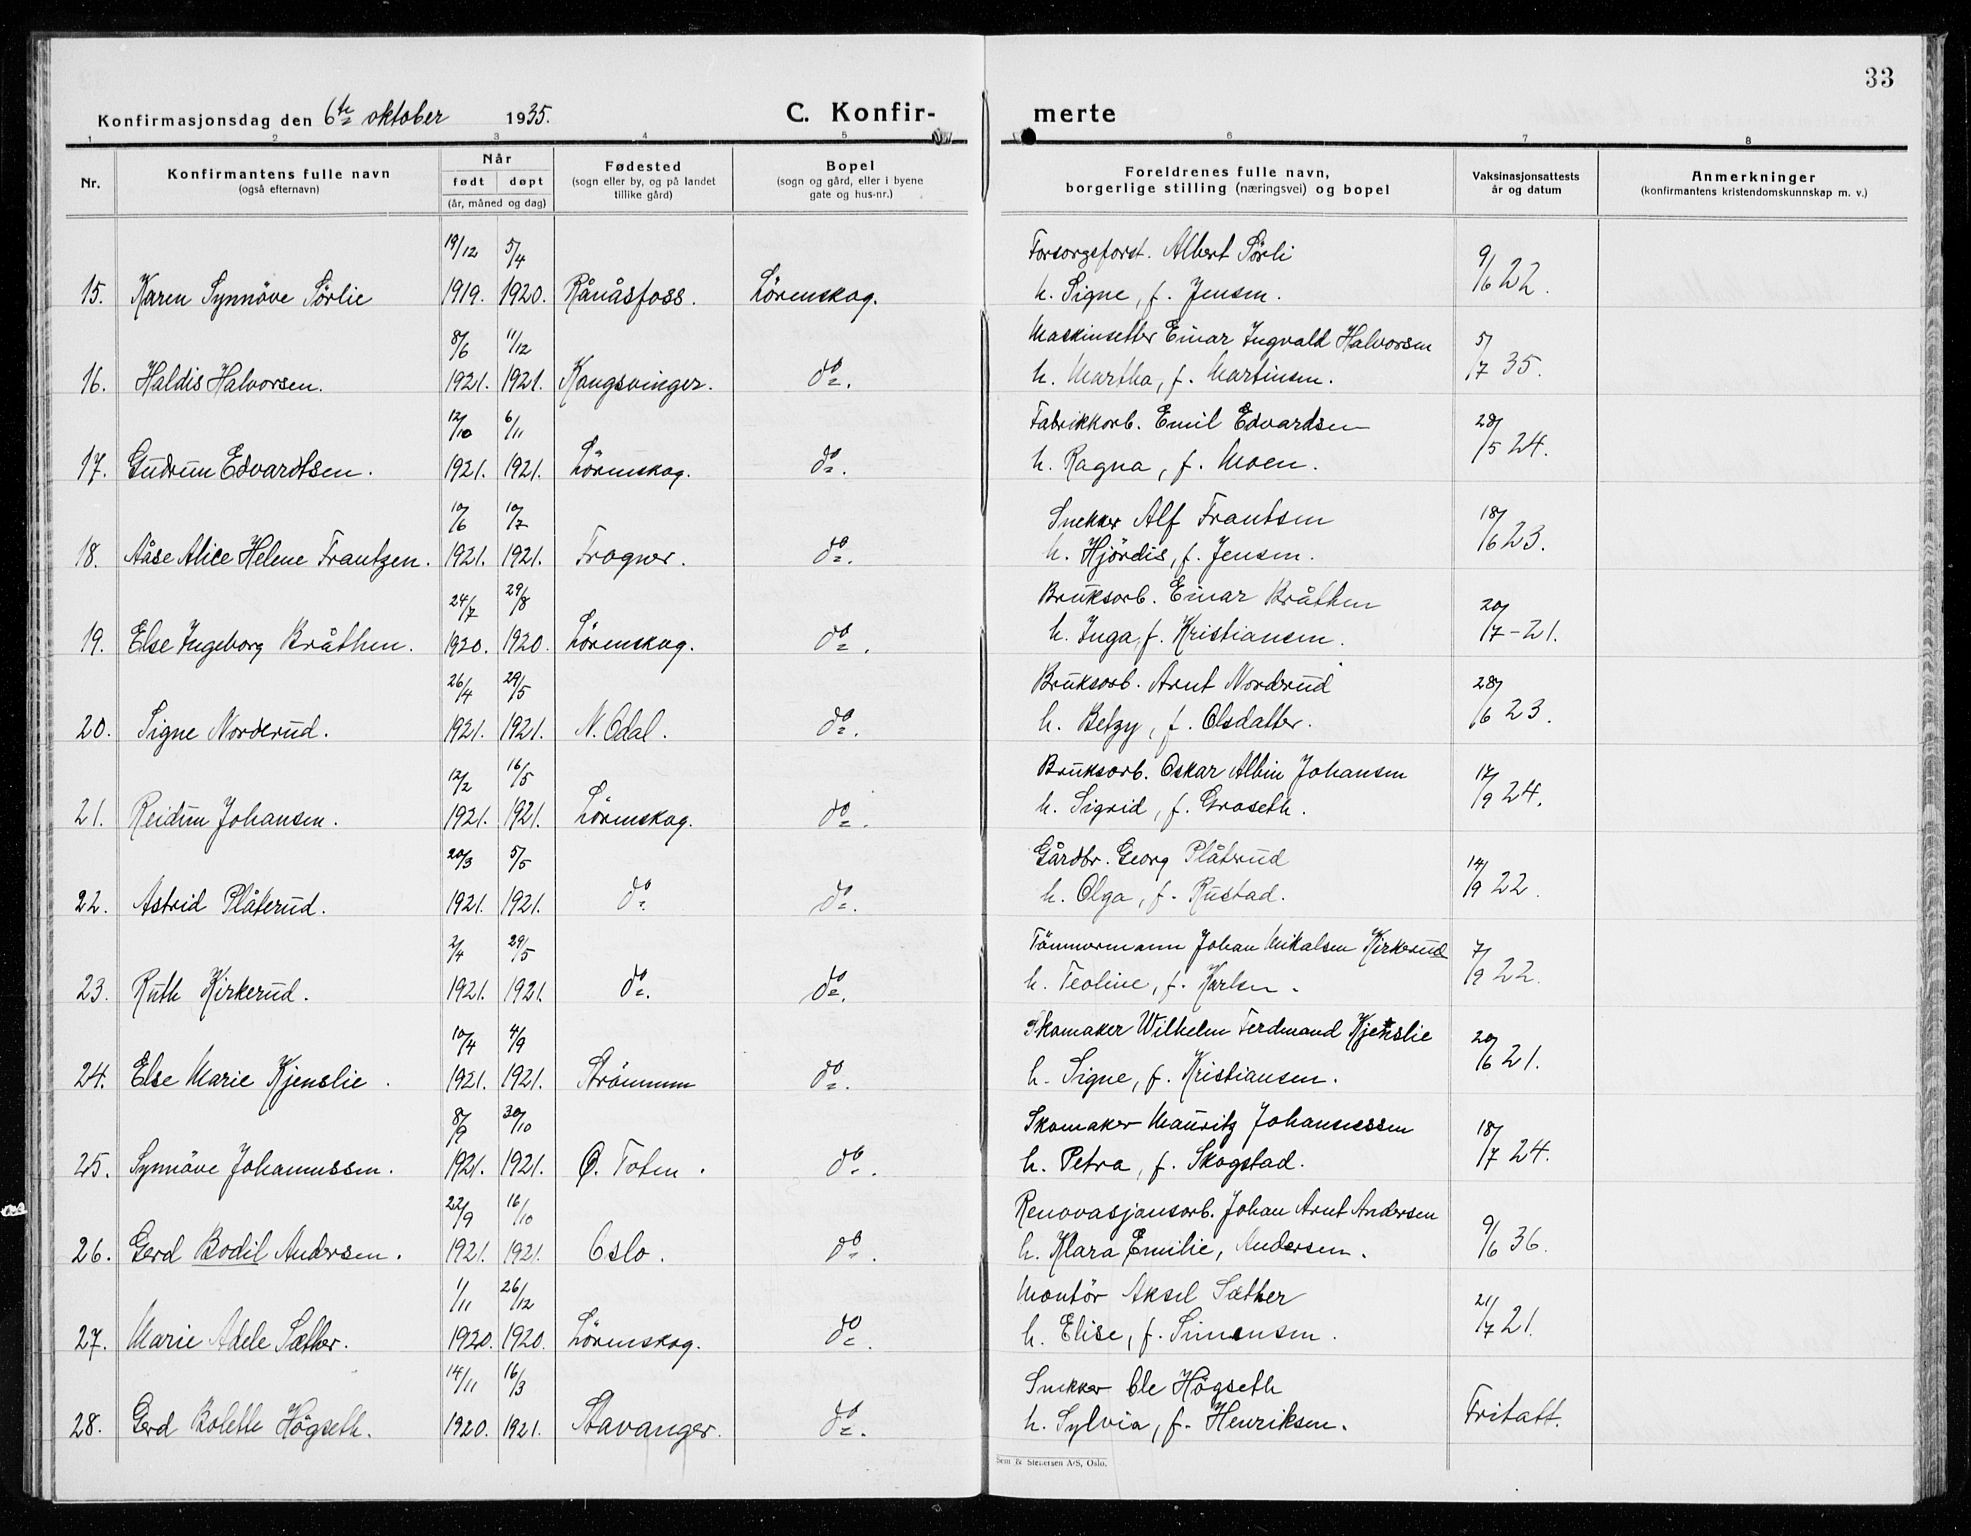 33
Konfirmasjonsdag den 6te oktober 1935. C. Konfir- merte
1 2 3 4 5 6 7 8
Nr. Konfirmantens fulle navn (også efternavn) Når født døpt (år, måned og dag) Fødested (sogn eller by, og på landet tillike gård) Bopel (sogn og gård, eller i byene gate og hus-nr.) Foreldrenes fulle navn, borgerlige stilling (næringsvei) og bopel Vaksinasjonsattests år og datum Anmerkninger (konfirmantens kristendomskunnskap m. v.)
19/12 5/4 Forsorgsforst. Albert Sörli 9/6 22.
15. Karen Synnöve Sörlie 1919. 1920. Rånåsfoss. Lörenskog. h. Signe, f. Jensen.
8/6 11/12 Maskinsetter Einar Ingvald Halvorsen 5/7 35.
16. Haldis Halvorsen. 1921. 1921. Kongsvinger. do. h. Martha, f. Martinsen.
12/10 6/11 Fabrikkarb. Emil Edvardsen 28/5 24.
17. Gudrun Edvardtsen. 1921. 1921. Lörenskog. do. h. Ragna, f. Moen.
10/6 10/7 Snekker Alf Frantsen 18/6 23.
18. Aase Alice Helene Frantzen. 1921. 1921. Frogner. do. h. Hjördis, f. Jensen.
24/7 29/8 Bruksarb. Einar Bråthen 20/7-21.
19. Else Ingeborg Bråthen. 1920. 1920. Lörenskog. do. h. Inga, f. Kristiansen.
26/4 29/5 Bruksarb. Arnt Norderud 28/6 23.
20. Signe Norderud. 1921. 1921. N. Odal. do. h. Betzy, f. Olsdatter.
12/2 16/5 Bruksarb. Oskar Albin Johansen 17/9 24.
21. Reidun Johansen. 1921. 1921. Lörenskog. do. h. Sigrid, f. Groseth.
20/3 5/5 Gårdbr. Georg Plåterud 14/9 22.
22. Astrid Plåterud. 1921. 1921. do. do. h. Olga, f. Rustad.
2/4 29/5 Tömmermann Johan Mikalsen Kirkerud 7/9 22.
23. Ruth Kirkerud. 1921. 1921. do. do. h. Teoline, f. Karlsen.
10/4 4/9 Skomaker Wilhelm Ferdinand Kjenslie 20/6 21.
24. Else Marie Kjenslie. 1921. 1921. Strömmen do. h. Signe, f. Kristiansen.
8/9 30/10 Skomaker Mauritz Johannessen 18/7 24.
25. Synnöve Johannessen. 1921. 1921. Ø. Toten. do. h. Petra, f. Skogstad.
22/9 16/10 Renovasjonsarb. Johan Arnt Andersen 9/6 36.
26. Gerd Bodil Andersen. 1921. 1921. Oslo. do. h. Klara Emilie, Andersen.
1/11 26/12 Montör Aksel Sæther 21/7 21.
27. Marie Adele Sæther. 1920. 1920. Lörenskog. do. h. Elise, f. Simensen.
14/11 16/3 Snekker Ole Högseth Fritatt.
28. Gerd Bolette Högseth. 1920. 1921. Stavanger. do. h. Sylvia, f. Henriksen.
Sem & Stenersen A/S, Oslo.